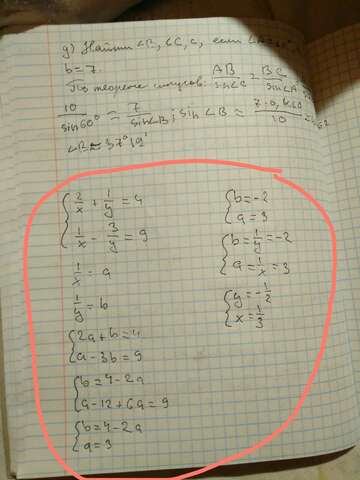 д) Найти ∠B, ∠C, c, если
b=7.
По теореме синусов: AB/sin∠C = BC/sin∠A
10/sin60° = 7/sin∠B; sin∠B ≈ 7·0,8660/10
∠B ≈ 37°19'
{2/x + 1/y = 4
1/x - 3/y = 9
1/x = a
1/y = b
{2a+b=4
a-3b=9
{b=4-2a
a-12+6a=9
{b=4-2a
a=3
{b=-2
a=3
{b=1/y=-2
a=1/x=3
{y=-1/2
x=1/3